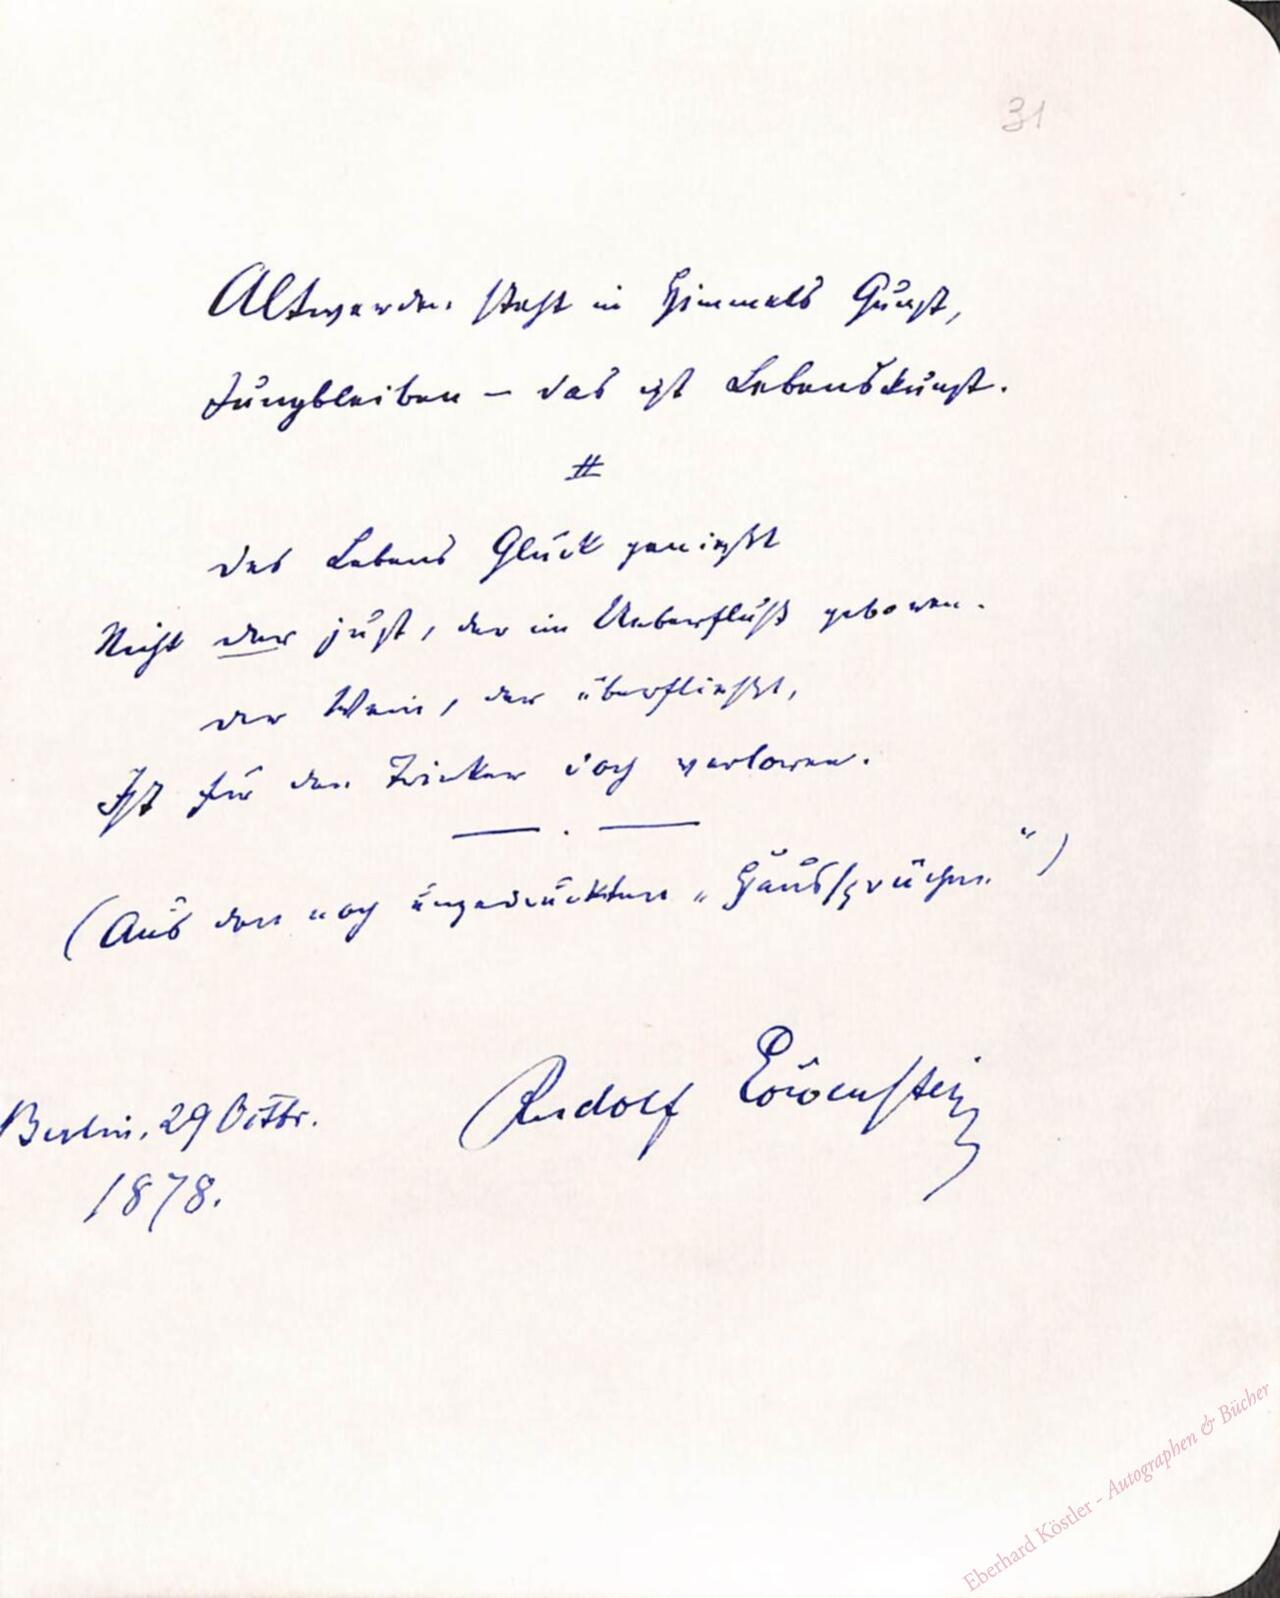 31
Altwerden steht in Himmels Gunst,
Jungbleiben – das ist Lebenskunst.
#
Des Lebens Glück genießt
Nicht der just, der im Ueberfluß geboren.
Der Wein, der überfließt,
Ist für den Trinker doch verloren.
— . —
(Aus den noch ungedruckten „Haussprüchen“)
Rudolf Löwenstein
Berlin, 29 Octbr.
1878.
Eberhard Köstler - Autographen & Bücher